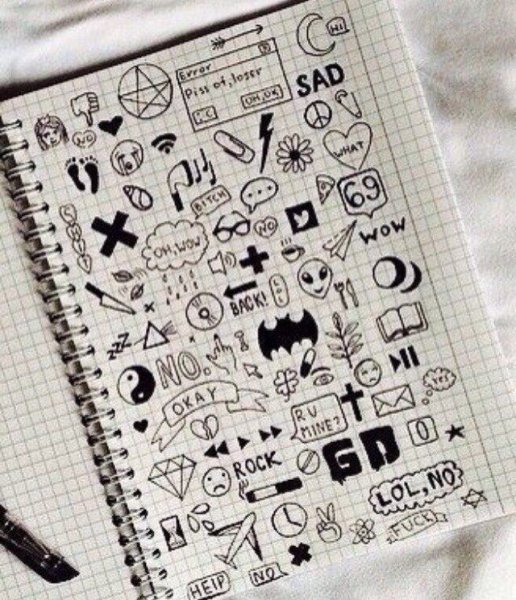 HI
Error
Piss of, loser
OH, OK
SAD
NO
WHAT
BITCH
69
OH, WOW
NO
WOW
BACK!
zzz
NO.
yes
OKAY
R U
MINE?
GD
0
ROCK
LOL, NO
FUCK
HELP
NO